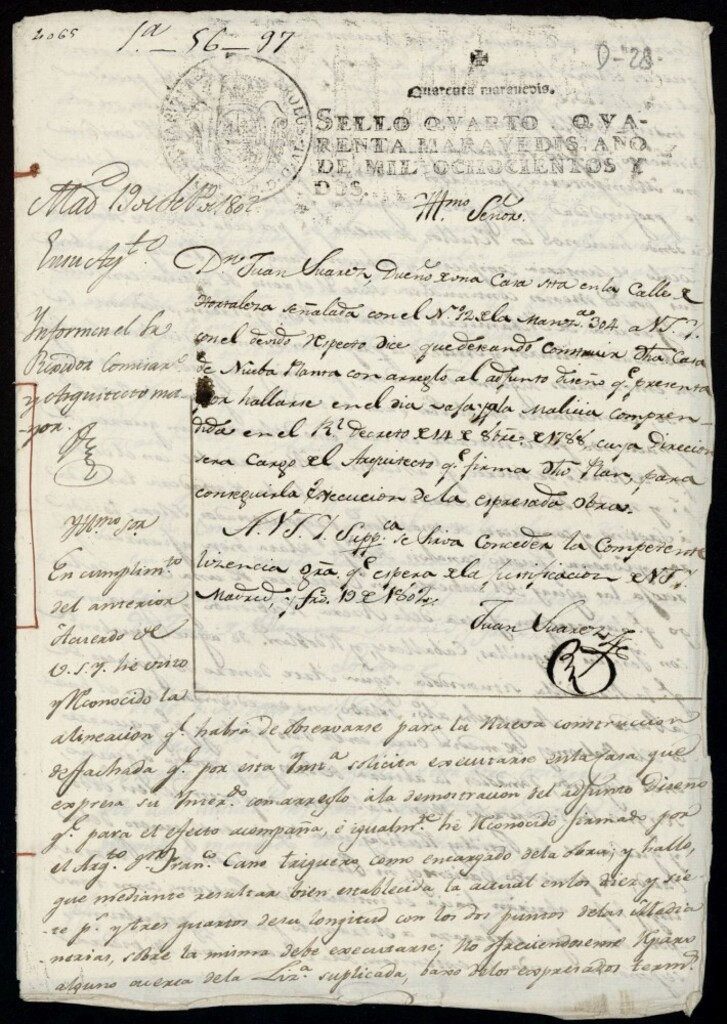 2065
1.ª - 56 - 97
0-28
Quarenta maravedis.
SELLO QVARTO, QVA-
RENTA MARAVEDIS, AÑO
DE MIL OCHOCIENTOS Y
DOS.
CAROLUS
Mad.d 19 de 1802
En su Ay.to
Informen el
Rexidor Comisar.o
y Arquitecto ma-
yor.
Yll.mo Señor.
Dn. Juan Suarez, Dueño de una Casa sita en la Calle de
Hortaleza señalada con el N.º 12 de la Manz.ª 304 a V.S.Y.
con el devido respecto dice que deseando construir dha Casa
de Nueba Planta con arreglo al adjunto diseño q.e presenta
por hallarse en el dia vaja la Malicia compren-
dida en el R.l decreto de 14 de 8bre. de 1788, cuya direccion
sera cargo del Arquitecto q.e firma dho Plan, para
conseguir la execucion de la espresada obra.
A V.S.Y. Supp.ca se sirva conceder la Competente
lizencia gra q.e espera de la justificacion de V.S.Y.
Madrid, y 19 de 1802.
Juan Suarez
Yll.mo Sor
En cumplim.to
del anterior
Acuerdo de
V.S.Y. he visto
y Reconocido la
alineacion q.e habrá de observarse para la Nueva construccion
de fachada q.e por esta Ynst.a solicita executarse en la Casa que
expresa su Ynter.do con arreglo á la demostracion del adjunto Diseño
q.e para el efecto acompaña, é igualm.te he Reconocido firmado por
el Arq.to Dn. Fran.co Cano Triguero, como encargado de la obra; y hallo,
que mediante resultar bien establecida la actual en los diez y sie-
te p.s y tres quartos de su longitud con los dos puntos de las Media-
nerias, sobre la misma debe executarse; no ofreciendoseme Reparo
alguno acerca de la Liz.a suplicada, baxo de los expresados term.s